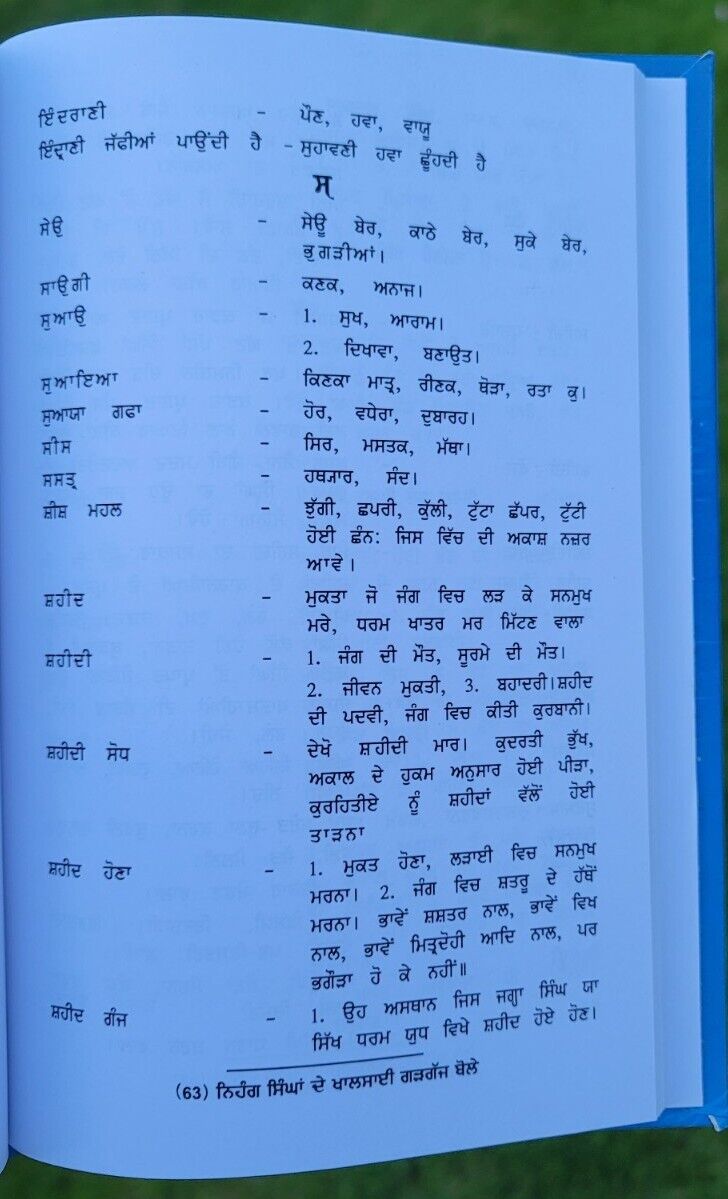 ਇੰਦਰਾਣੀ - ਪੌਣ, ਹਵਾ, ਵਾਯੂ
ਇੰਦ੍ਰਾਣੀ ਜੱਫੀਆਂ ਪਾਉਂਦੀ ਹੈ - ਸੁਹਾਵਣੀ ਹਵਾ ਛੂੰਹਦੀ ਹੈ
ਸ੍
ਸੇਉ - ਸੇਊ ਬੇਰ, ਕਾਠੇ ਬੇਰ, ਸੁਕੇ ਬੇਰ,
ਭੁਗੜੀਆਂ।
ਸਾਉਗੀ - ਕਣਕ, ਅਨਾਜ।
ਸੁਆਉ - 1. ਸੁਖ, ਆਰਾਮ।
2. ਦਿਖਾਵਾ, ਬਣਾਉਤ।
ਸੁਆਇਆ - ਕਿਣਕਾ ਮਾਤ੍ਰ, ਰੀਣਕ, ਥੋੜਾ, ਰਤਾ ਕੁ।
ਸੁਆਯਾ ਗਫਾ - ਹੋਰ, ਵਧੇਰਾ, ਦੁਬਾਰਹ।
ਸੀਸ - ਸਿਰ, ਮਸਤਕ, ਮੱਥਾ।
ਸਸਤ੍ਰ - ਹਥ੍ਯਾਰ, ਸੰਦ।
ਸ਼ੀਸ਼ ਮਹਲ - ਝੁੱਗੀ, ਛਪਰੀ, ਕੁੱਲੀ, ਟੁੱਟਾ ਛੱਪਰ, ਟੁੱਟੀ
ਹੋਈ ਛੰਨ: ਜਿਸ ਵਿੱਚ ਦੀ ਅਕਾਸ਼ ਨਜ਼ਰ
ਆਵੇ।
ਸ਼ਹੀਦ - ਮੁਕਤਾ ਜੋ ਜੰਗ ਵਿਚ ਲੜ ਕੇ ਸਨਮੁਖ
ਮਰੇ, ਧਰਮ ਖਾਤਰ ਮਰ ਮਿੱਟਣ ਵਾਲਾ
ਸ਼ਹੀਦੀ - 1. ਜੰਗ ਦੀ ਮੌਤ, ਸੂਰਮੇ ਦੀ ਮੌਤ।
2. ਜੀਵਨ ਮੁਕਤੀ, 3. ਬਹਾਦਰੀ।ਸ਼ਹੀਦ
ਦੀ ਪਦਵੀ, ਜੰਗ ਵਿਚ ਕੀਤੀ ਕੁਰਬਾਨੀ।
ਸ਼ਹੀਦੀ ਸੋਧ - ਦੇਖੋ ਸ਼ਹੀਦੀ ਮਾਰ। ਕੁਦਰਤੀ ਭੁੱਖ,
ਅਕਾਲ ਦੇ ਹੁਕਮ ਅਨੁਸਾਰ ਹੋਈ ਪੀੜਾ,
ਕੁਰਹਿਤੀਏ ਨੂੰ ਸ਼ਹੀਦਾਂ ਵੱਲੋਂ ਹੋਈ
ਤਾੜਨਾ
ਸ਼ਹੀਦ ਹੋਣਾ - 1. ਮੁਕਤ ਹੋਣਾ, ਲੜਾਈ ਵਿਚ ਸਨਮੁਖ
ਮਰਨਾ। 2. ਜੰਗ ਵਿਚ ਸ਼ਤਰੂ ਦੇ ਹੱਥੋਂ
ਮਰਨਾ। ਭਾਵੇਂ ਸ਼ਸ਼ਤਰ ਨਾਲ, ਭਾਵੇਂ ਵਿਖ
ਨਾਲ, ਭਾਵੇਂ ਮਿਤ੍ਰਦੋਹੀ ਆਦਿ ਨਾਲ, ਪਰ
ਭਗੌੜਾ ਹੋ ਕੇ ਨਹੀਂ॥
ਸ਼ਹੀਦ ਗੰਜ - 1. ਉਹ ਅਸਥਾਨ ਜਿਸ ਜਗ੍ਹਾ ਸਿੰਘ ਯਾ
ਸਿੱਖ ਧਰਮ ਯੁਧ ਵਿਖੇ ਸ਼ਹੀਦ ਹੋਏ ਹੋਣ।
(63) ਨਿਹੰਗ ਸਿੰਘਾਂ ਦੇ ਖਾਲਸਾਈ ਗੜਗੱਜ ਬੋਲੇ